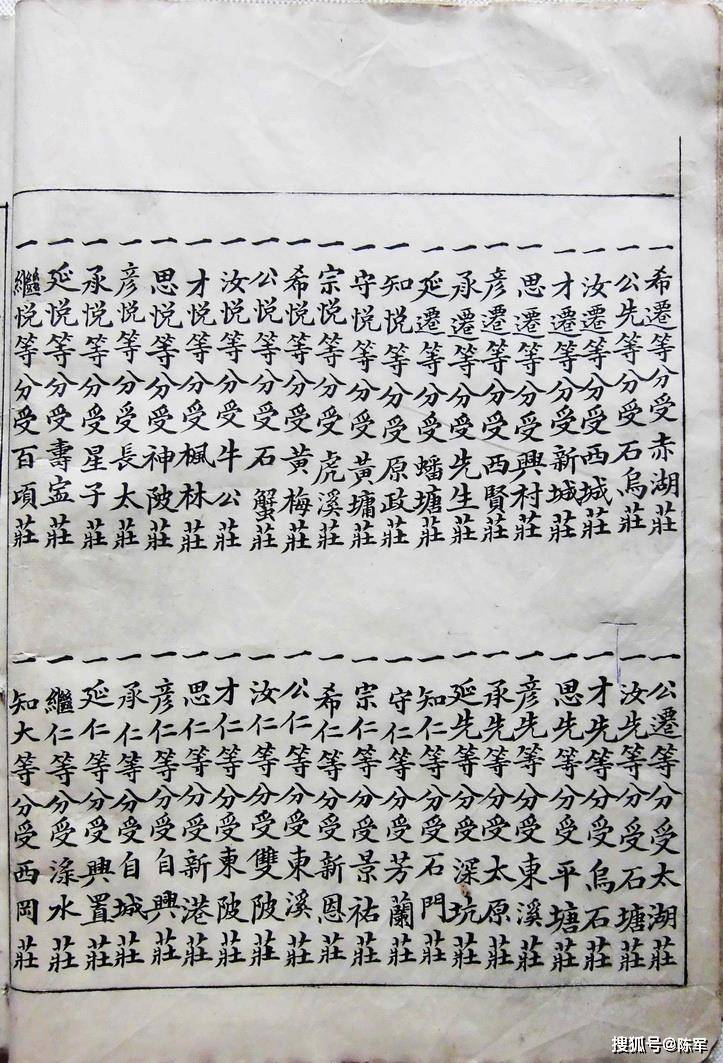 一希遷等分受赤湖莊
一公先等分受石烏莊
一汝遷等分受西城莊
一才遷等分受新城莊
一思遷等分受興村莊
一彥遷等分受西賢莊
一承遷等分受先生莊
一延遷等分受蟠塘莊
一知悦等分受原政莊
一守悦等分受黃墉莊
一宗悦等分受虎溪莊
一希悦等分受黃梅莊
一公悦等分受石蟹莊
一汝悦等分受牛公莊
一才悦等分受楓林莊
一思悦等分受神陂莊
一彥悦等分受長太莊
一承悦等分受星子莊
一延悦等分受壽寍莊
一繼悦等分受百項莊
一公遷等分受太湖莊
一汝先等分受石塘莊
一才先等分受烏石莊
一思先等分受平塘莊
一彥先等分受東溪莊
一承先等分受太原莊
一延先等分受深坑莊
一知仁等分受石門莊
一守仁等分受芳蘭莊
一宗仁等分受景祐莊
一希仁等分受新恩莊
一公仁等分受東溪莊
一汝仁等分受雙陂莊
一才仁等分受東陂莊
一思仁等分受新港莊
一彥仁等分受自興莊
一承仁等分受自城莊
一延仁等分受興置莊
一繼仁等分受淥水莊
一知大等分受西岡莊
搜狐号@陈军